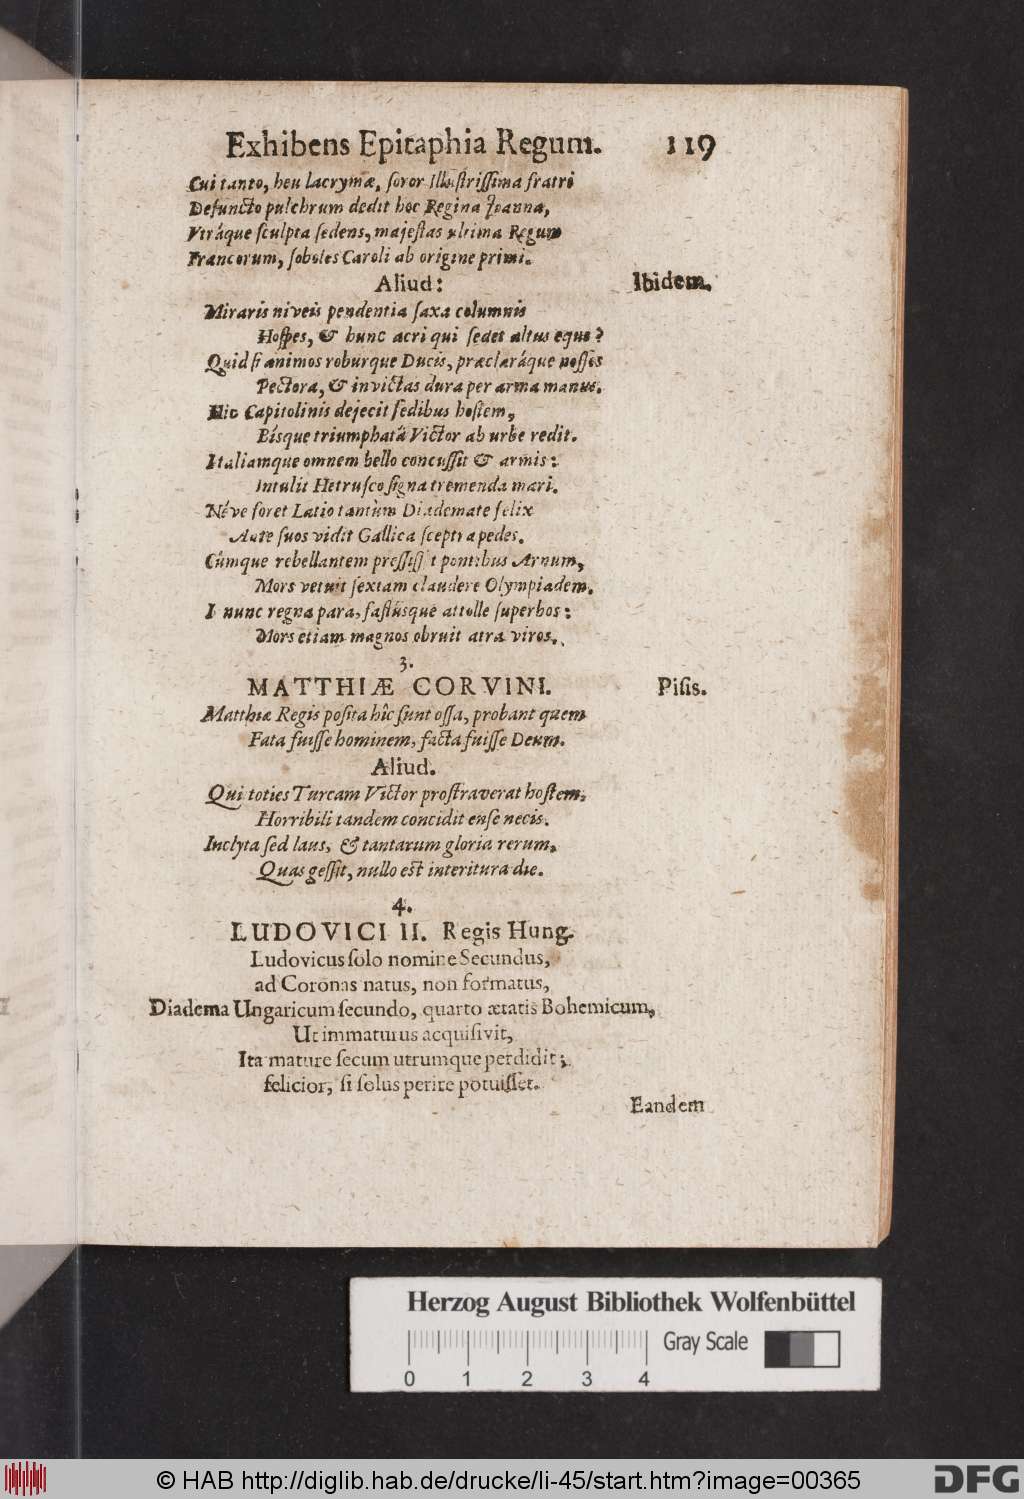 Exhibens Epitaphia Regum. 119
Cui tanto, heu lacrymæ, soror Illustrissima fratri
Defuncto pulchrum dedit hoc Regina Joanna,
Vtráque sculpta sedens, majestas ultima Regum
Francorum, soboles Caroli ab origine primi.
Aliud: Ibidem.
Miraris niveis pendentia saxa columnis
Hospes, & hunc acri qui sedet altus equo?
Quid si animos roburque Ducis, præclaráque nosses
Pectora, & invictas dura per arma manus.
Hic Capitolinis dejecit sedibus hostem,
Bisque triumphatâ Victor ab urbe redit.
Italiamque omnem bello concussit & armis:
Intulit Hetrusco signa tremenda mari.
Néve foret Latio tantùm Diademate felix
Ante suos vidit Gallica sceptra pedes.
Cúmque rebellantem pressisset pontibus Arnum,
Mors vetuit sextam claudere Olympiadem.
I nunc regna para, fastúsque attolle superbos:
Mors etiam magnos obruit atra viros.
3.
MATTHIÆ CORVINI. Pisis.
Matthiæ Regis posita hîc sunt ossa, probant quem
Fata fuisse hominem, facta fuisse Deum.
Aliud.
Qui toties Turcam Victor prostraverat hostem,
Horribili tandem concidit ense necis.
Inclyta sed laus, & tantarum gloria rerum,
Quas gessit, nullo est interitura die.
4.
LUDOVICI II. Regis Hung.
Ludovicus solo nomine Secundus,
ad Coronas natus, non formatus,
Diadema Ungaricum secundo, quarto ætatis Bohemicum,
Ut immaturus acquisivit,
Ita mature secum utrumque perdidit;
felicior, si solus perire potuisset.
Eandem
Herzog August Bibliothek Wolfenbüttel
Gray Scale
0 1 2 3 4
© HAB http://diglib.hab.de/drucke/li-45/start.htm?image=00365
DFG